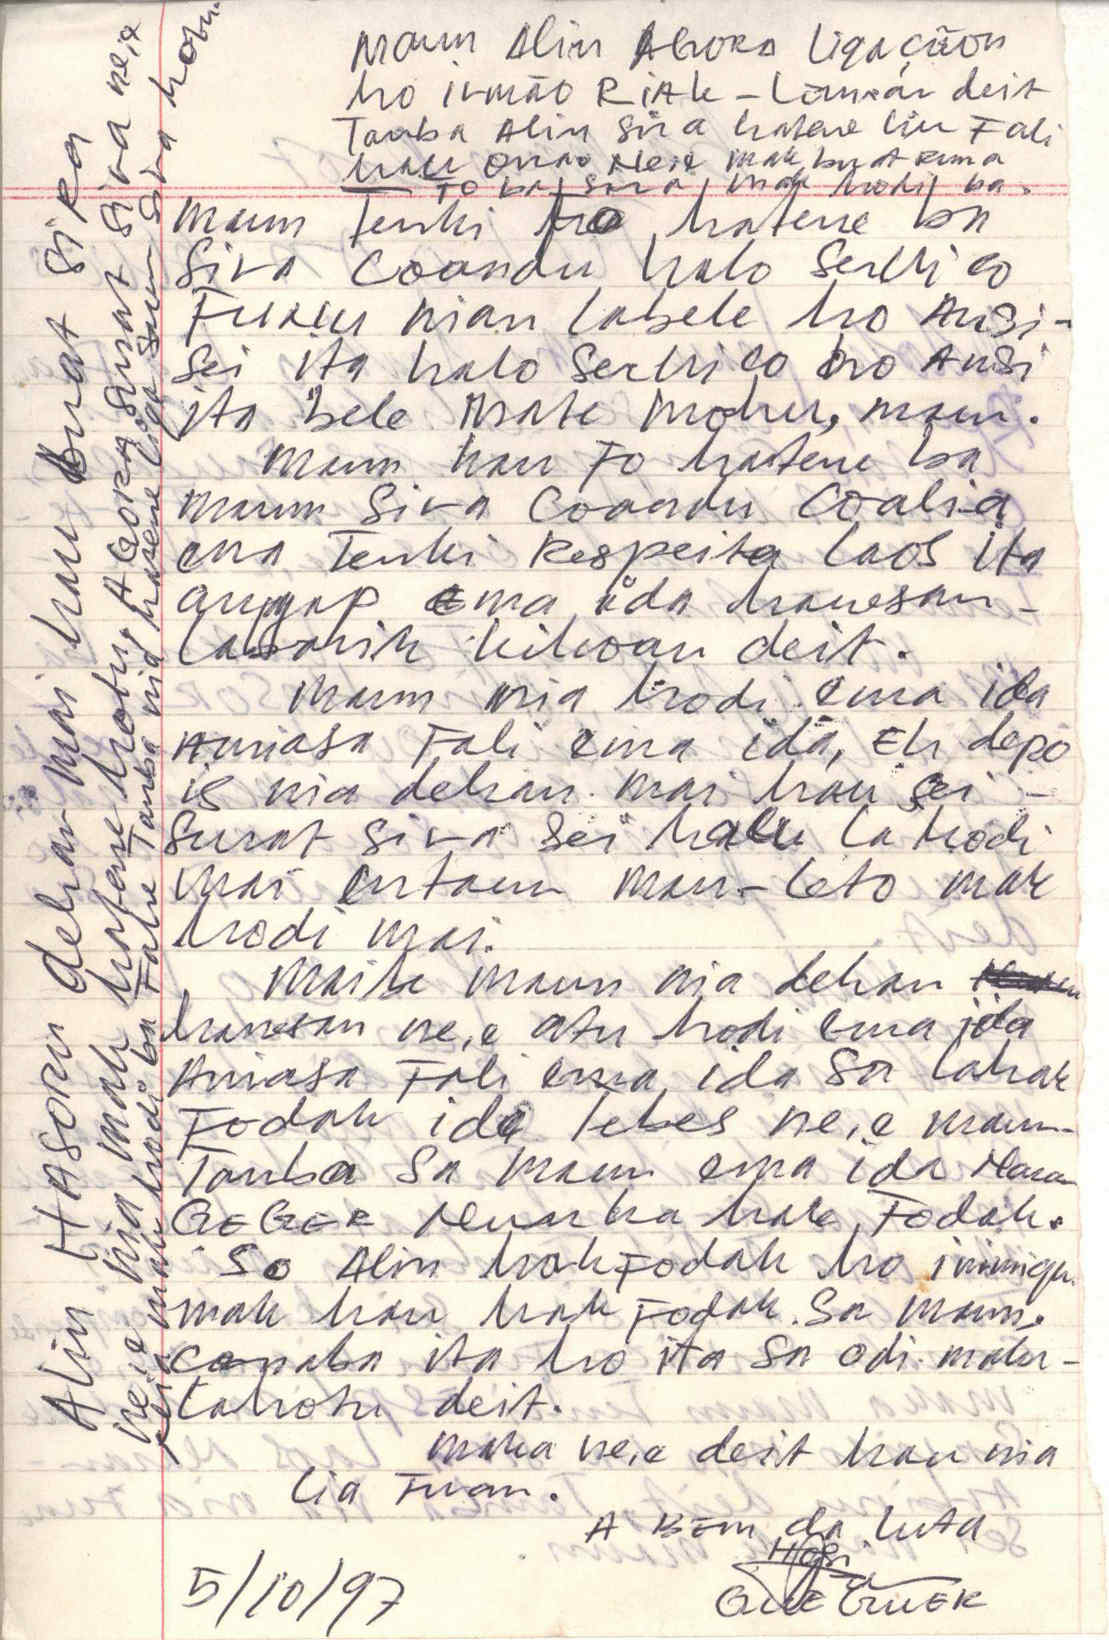 Maun Alin Agora ligaçãon
ho irmão Riak - Lemxar deit
Tanba Alin Sira hatene liu Fali
hau oras ne,e mak buat ruma
To ba Sira mak hodi ba.
maun Tenki fo hatene ba
Sira Coandu halo Serbico
Fulau nian labele ho Ansi-
Sei ita halo Serbico ho Ansi
ita bele mate mohu, maun.
maun hau Fo hatene ba
maun Sira Coandu Coalia
ema Tenki Respeita laos ita
angap ema ida hanesan
labarik kikoan deit.
maun nia hodi ema ida
Amiasa Fali ema ida, Eh depo
is nia dehan mai hau sei
Surat Sira sei halu la hodi
mai entaun mau-leto mak
hodi mai.
maibe maun nia dehan
hanesan ne,e atu hodi ema ida
Amiasa Fali ema ida Sa lahak
Fodak ida lebes ne,e maun
Tanba Sa maun ema ida Naran
GEGER Nunka hak Fodak.
So Alin hakFodak ho inimigu
mak hau hak Fodak. Sa maun.
canaba ita ho ita Sa odi malu
lahotu deit.
maka ne,e deit hau nia
lia Fuan.
A BEm da luta
GUE GUER
5/10/97
Alin HASORU dehan mai hau buat Sira
ne,e nia mak hatene hotu, AGORA Surat Sira ne,e
nia mak hodi ba Fahe Tanba nia hatene liga Saun Sira hotu.